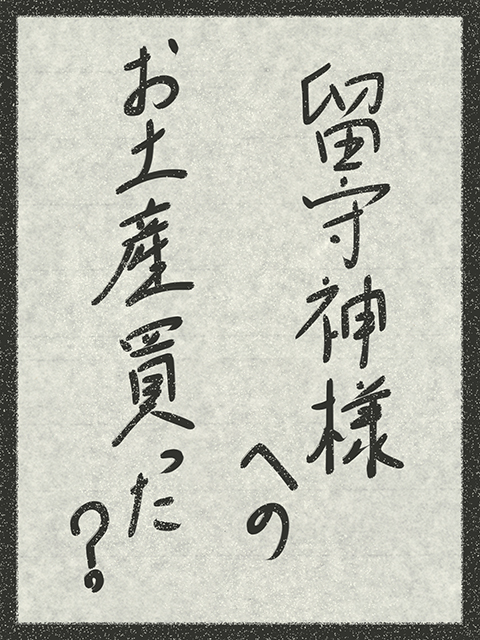 留守神様
への
お土産買った
?